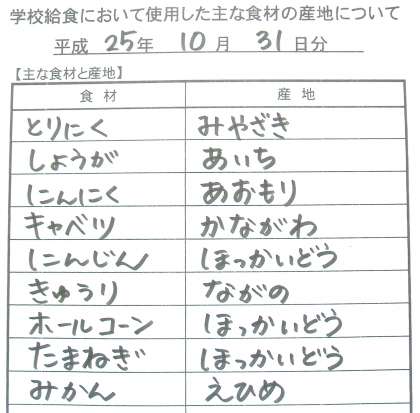 学校給食において使用した主な食材の産地について
平成 25年 10月 31日分
【主な食材と産地】
食材 産地
とりにく みやざき
しょうが あいち
にんにく あおもり
キャベツ かながわ
にんじん ほっかいどう
きゅうり ながの
ホールコーン ほっかいどう
たまねぎ ほっかいどう
みかん えひめ